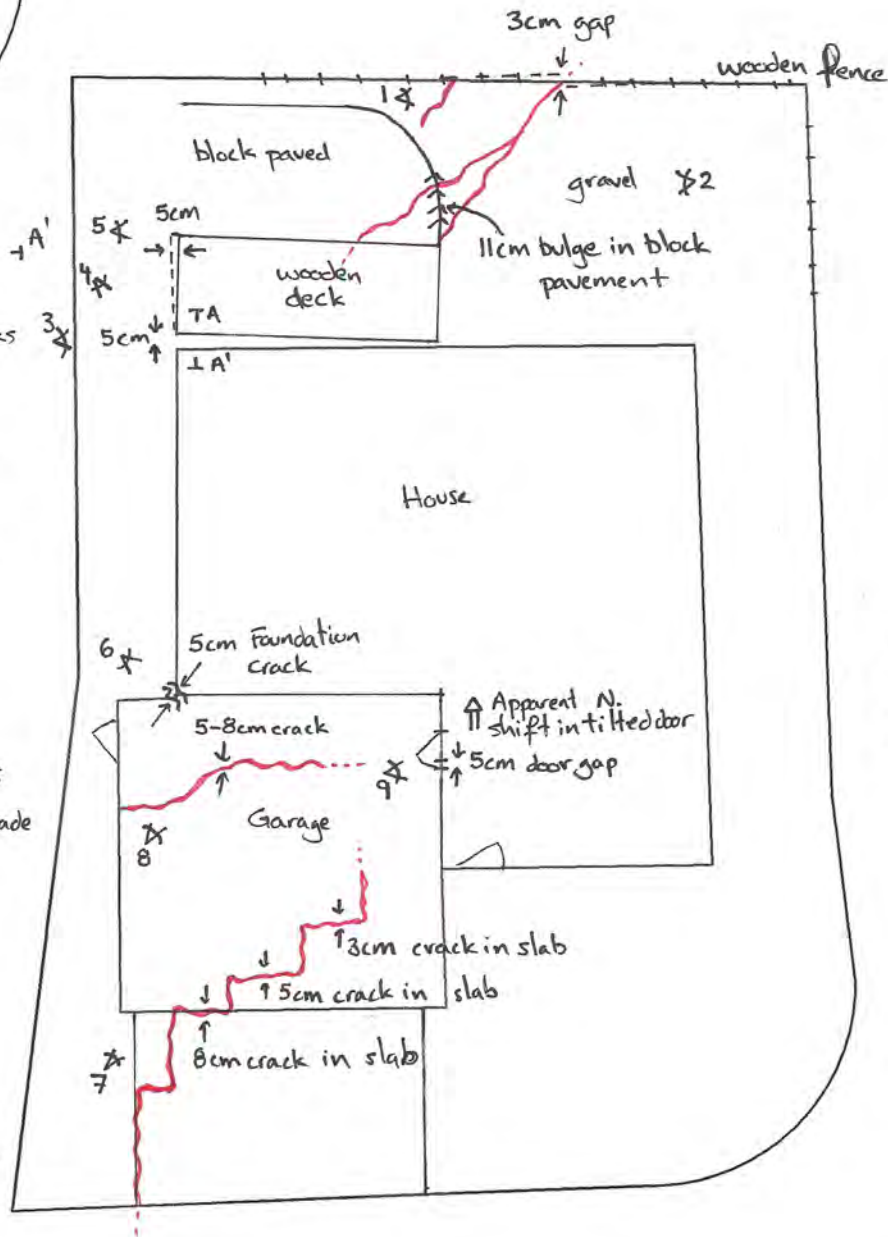 3cm gap
wooden fence
1
block paved
gravel
2
5cm
5
A'
11cm bulge in block
pavement
4
wooden
deck
A
3
5cm
A'
House
6
5cm Foundation
crack
Apparent N.
shift in tilted door
5-8cm crack
5cm door gap
9
ade
Garage
8
3cm crack in slab
5cm crack in slab
8cm crack in slab
7